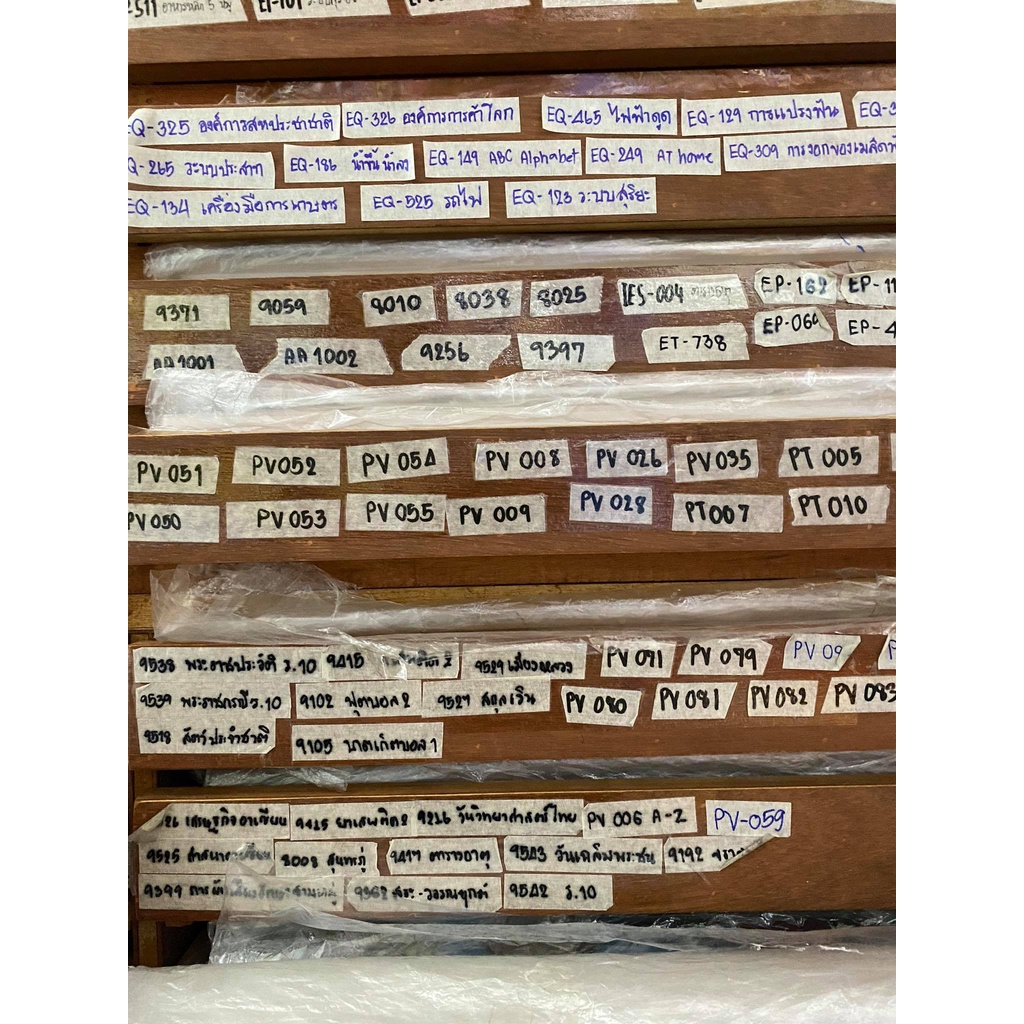 อาหารหลัก 5 หมู่
EQ-325 องค์การสหประชาชาติ EQ-326 องค์การการค้าโลก EQ-465 ไฟฟ้าดูด EQ-129 การแปรงฟัน
Q-265 ระบบประสาท EQ-186 น้ำขึ้น น้ำลง EQ-149 ABC Alphabet EQ-249 AT home EQ-309 การงอกของเมล็ด
EQ-134 เครื่องมือการเกษตร EQ-525 รถไฟ EQ-123 ระบบสุริยะ
9371 9059 8010 8038 8025 IES-004 EP-162 EP-11
AA1001 AA1002 9256 9397 ET-738 EP-060 EP-4
PV 051 PV052 PV 054 PV 008 PV 026 PV 035 PT 005
PV 050 PV 053 PV 055 PV 009 PV 028 PT007 PT 010
9538 พระราชประวัติ ร.10 9415 9529 เมืองหลวง PV 071 PV 079 PV 09
9539 พระราชกรณีย์ ร.10 9102 ฟุตบอล 2 9527 สกุลเงิน PV 080 PV 081 PV 082 PV 083
9518 สัตว์ประจำชาติ 9105 บาสเก็ตบอล 1
26 เศรษฐกิจอาเซียน 9415 ยาเสพติด 2 9216 วันวิทยาศาสตร์ไทย PV 006 A-Z PV-059
9525 ศาสนาอาเซียน 8008 สุนทรภู่ 9417 ตารางธาตุ 9543 วันเฉลิมพระชน 9192
9399 9362 สระ-วรรณยุกต์ 9542 ร.10